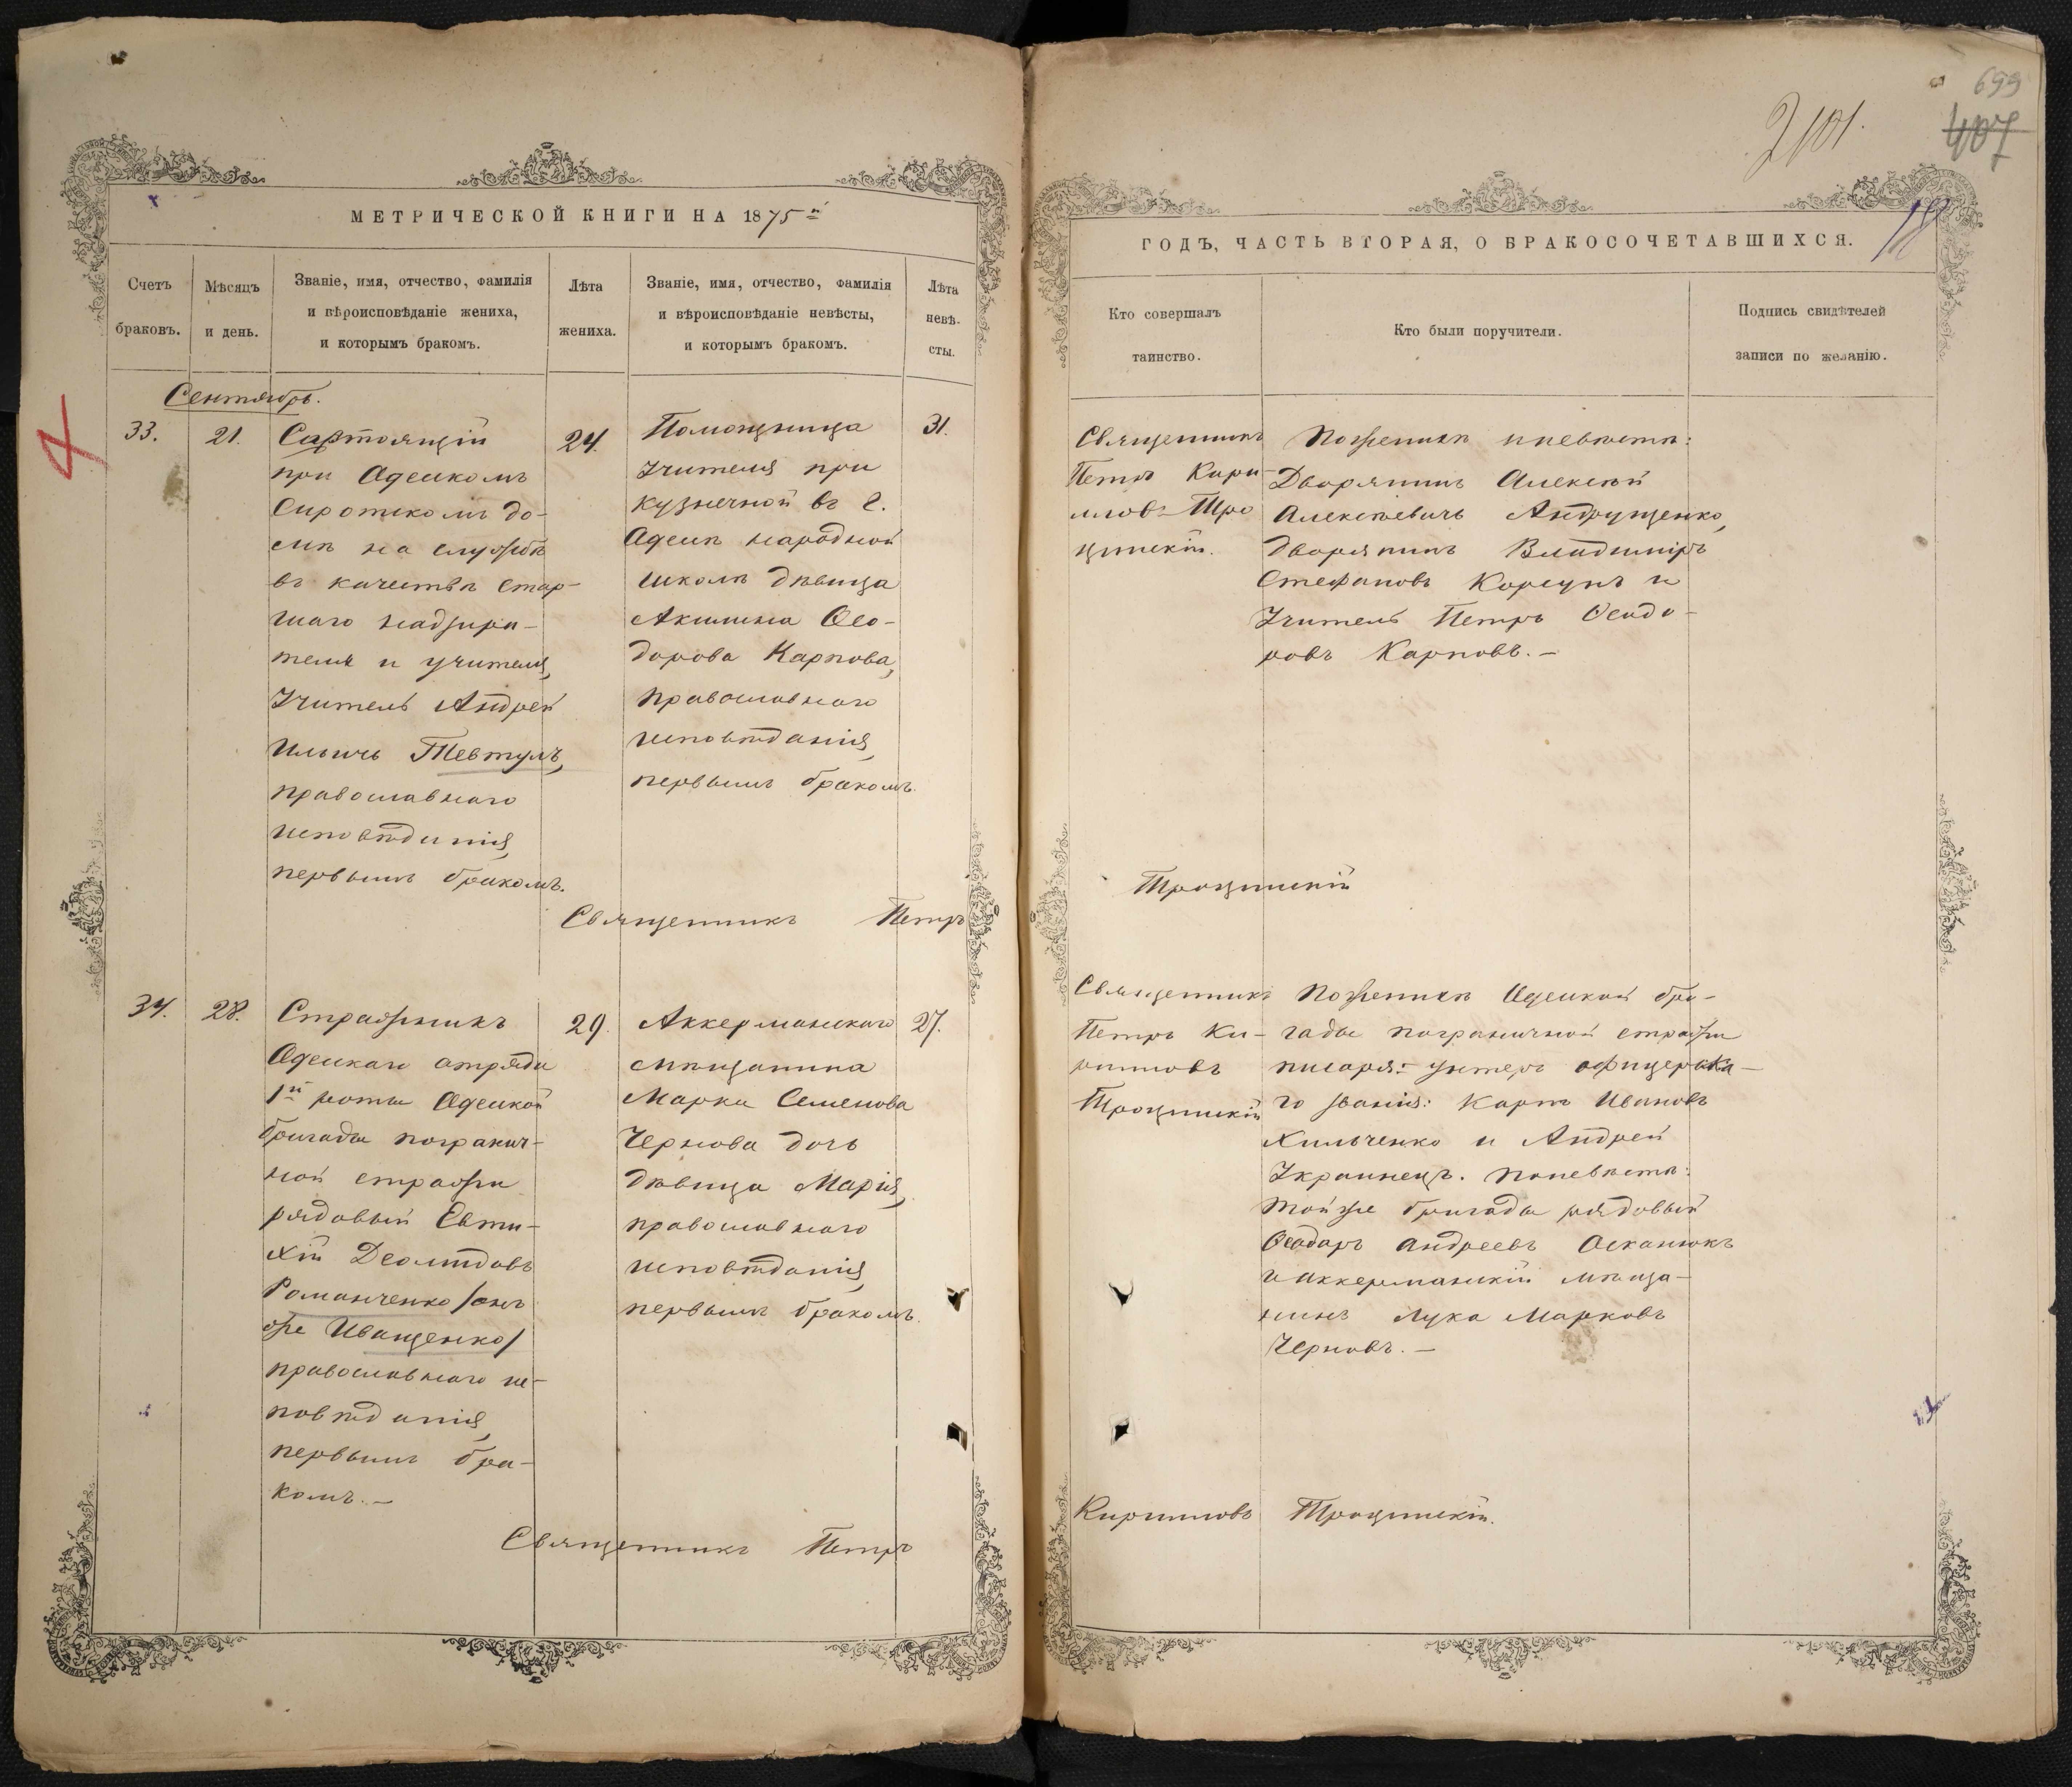 МЕТРИЧЕСКОЙ КНИГИ НА 1875й
Счетъ
браковъ.
Мѣсяцъ
и день.
Званіе, имя, отчество, фамилія
и вѣроисповѣданіе жениха,
и которымъ бракомъ.
Лѣта
жениха.
Званіе, имя, отчество, фамилія
и вѣроисповѣданіе невѣсты,
и которымъ бракомъ.
Лѣта
невѣ-
сты.
Сентябрь.
33.
21.
Состоящій
при Одесскомъ
Сиротскомъ до-
мѣ на службѣ
въ качествѣ Стар-
шаго надзира-
теля и учителя,
Учитель Андрей
Ильичъ Тевтулъ,
православнаго
исповѣданія,
первымъ бракомъ.
24.
Помощница
Учителя при
Кузнечной въ г.
Одессѣ народной
школѣ дѣвица
Акилина Ѳео-
дорова Карпова,
православнаго
исповѣданія,
первымъ бракомъ.
31.
Священникъ Петръ
34.
28.
Стражникъ
Одескаго отряда
1й роты Одеской
бригады погранич-
ной стражи
рядовый Евти-
хій Деомидовъ
Романченко /онъ
же Иващенко/
православнаго ис-
повѣданія,
первымъ бра-
комъ.—
29.
Аккерманскаго
мѣщанина
Марка Семенова
Чернова дочь
дѣвица Марія,
православнаго
исповѣданія,
первымъ бракомъ.
27.
Священникъ Петръ
699
407
2101.
18
ГОДЪ, ЧАСТЬ ВТОРАЯ, О БРАКОСОЧЕТАВШИХСЯ.
Кто совершалъ
таинство.
Кто были поручители.
Подпись свидѣтелей
записи по желанію.
Священникъ
Петръ Кири-
лловъ Тро
цинскій.
По женихѣ и невѣстѣ:
Дворянинъ Алексѣй
Алексѣевичъ Андрущенко,
дворянинъ Владиміръ
Стефановъ Корсунъ и
Учитель Петръ Ѳеодо-
ровъ Карповъ.—
Троцинскій
Священникъ
Петръ Ки-
рилловъ
Троцинскій
По женихѣ Одеской бри-
гады пограничной стражи
писаря: унтеръ офицерска-
го званія: Карпъ Ивановъ
Хильченко и Андрей
Украинецъ. По невѣстѣ:
той же бригады рядовый
Ѳеодоръ Андреевъ Осканюкъ
и аккерманскій мѣща-
нинъ Лука Марковъ
Черновъ.—
Кирилловъ Троцинскій.